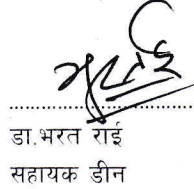 डा.भरत राई
सहायक डीन